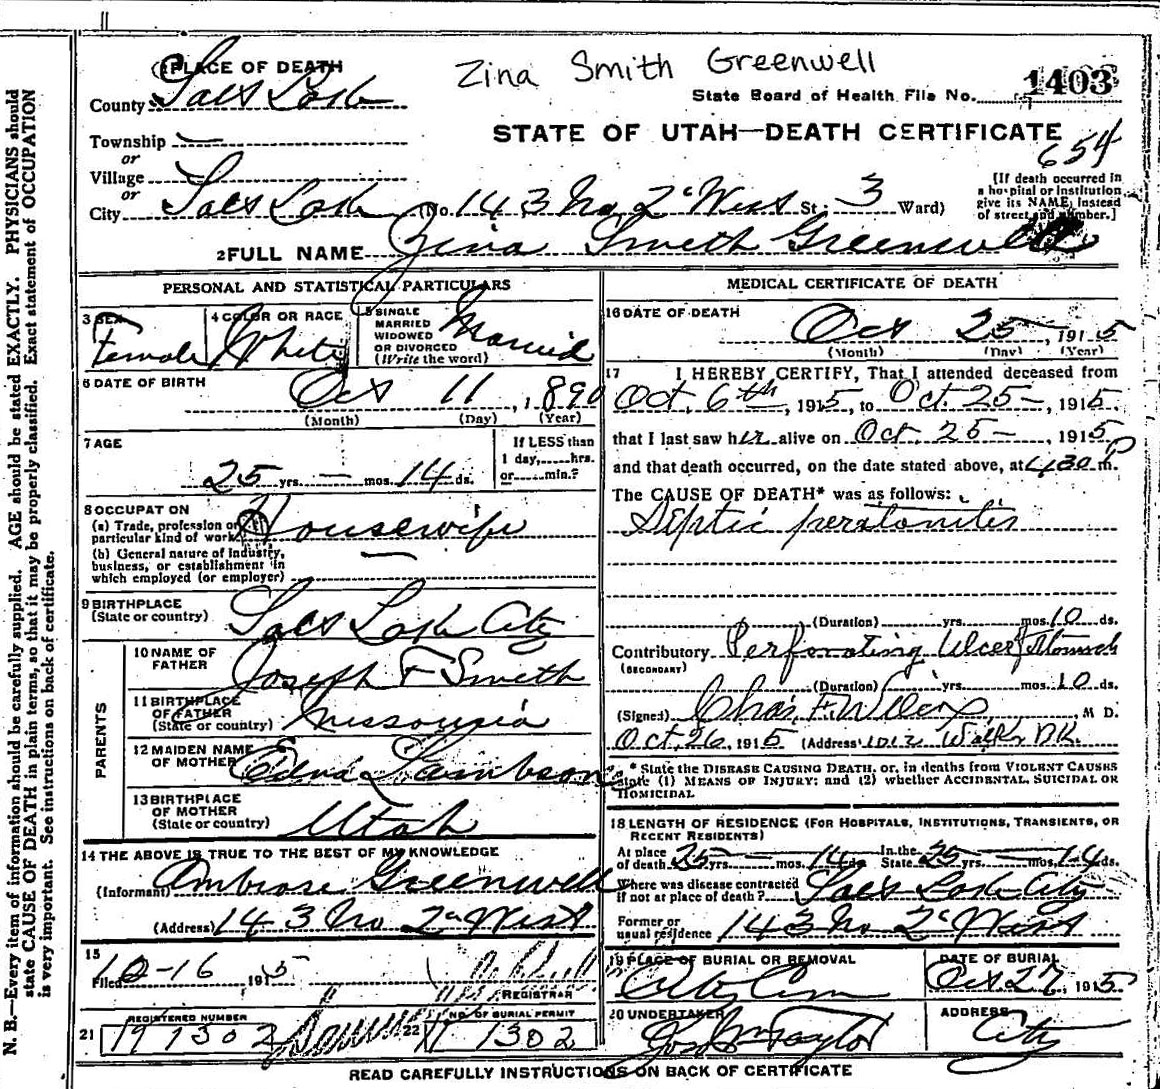 Zina Smith Greenwell
1 PLACE OF DEATH
County Salt Lake
State Board of Health File No. 1403
STATE OF UTAH—DEATH CERTIFICATE
654
Township —
or
Village
or
City Salt Lake (No. 143 No 2d West St. 3 Ward)
[If death occurred in
a hospital or institution
give its NAME, instead
of street and number.]
2 FULL NAME Zina Smith Greenwell
PERSONAL AND STATISTICAL PARTICULARS
3 SEX
Female
4 COLOR OR RACE
White
5 SINGLE
MARRIED
WIDOWED
OR DIVORCED
(Write the word)
Married
6 DATE OF BIRTH
Oct 11, 1890
(Month) (Day) (Year)
7 AGE
25 yrs. — mos. 14 ds.
If LESS than
1 day, hrs.
or min.?
8 OCCUPATION
(a) Trade, profession or
particular kind of work
Housewife
(b) General nature of industry,
business, or establishment in
which employed (or employer)
—
9 BIRTHPLACE
(State or country)
Salt Lake City
PARENTS
10 NAME OF
FATHER
Joseph F Smith
11 BIRTHPLACE
OF FATHER
(State or country)
Missouria
12 MAIDEN NAME
OF MOTHER
Edna Lambsone
13 BIRTHPLACE
OF MOTHER
(State or country)
Utah
14 THE ABOVE IS TRUE TO THE BEST OF MY KNOWLEDGE
(Informant) Ambrose Greenwell
(Address) 143 No 2d West
15
Filed 10-16 1915
REGISTRAR
REGISTERED NUMBER
21
22 NO. OF BURIAL PERMIT
1302
MEDICAL CERTIFICATE OF DEATH
16 DATE OF DEATH
Oct 25, 1915
(Month) (Day) (Year)
17 I HEREBY CERTIFY, That I attended deceased from
Oct. 6th, 1915, to Oct. 25—, 1915,
that I last saw her alive on Oct. 25—, 1915
and that death occurred, on the date stated above, at 4.30 P m.
The CAUSE OF DEATH* was as follows:
Septic peretonitis
(Duration) yrs. mos. 10 ds.
Contributory Perforating Ulcer of Stomach
(SECONDARY)
(Duration) yrs. mos. 10 ds.
(Signed) Chas. F. Wilcox, M D.
Oct. 26, 1915 (Address) 1012 Walker Bk.
* State the DISEASE CAUSING DEATH, or, in deaths from VIOLENT CAUSES
state (1) MEANS OF INJURY; and (2) whether ACCIDENTAL, SUICIDAL OR
HOMICIDAL
18 LENGTH OF RESIDENCE (FOR HOSPITALS, INSTITUTIONS, TRANSIENTS, OR
RECENT RESIDENTS)
At place
of death 25 yrs. — mos. 14 ds. In the
State 25 yrs. mos. 14 ds.
Where was disease contracted
if not at place of death? Salt Lake City
Former or
usual residence 143 No 2d West
19 PLACE OF BURIAL OR REMOVAL
City Cem
DATE OF BURIAL
Oct 27, 1915
20 UNDERTAKER
Jos Wm Taylor
ADDRESS
City
READ CAREFULLY INSTRUCTIONS ON BACK OF CERTIFICATE
N. B.—Every item of information should be carefully supplied. AGE should be stated EXACTLY. PHYSICIANS should
state CAUSE OF DEATH in plain terms, so that it may be properly classified. Exact statement of OCCUPATION
is very important. See instructions on back of certificate.